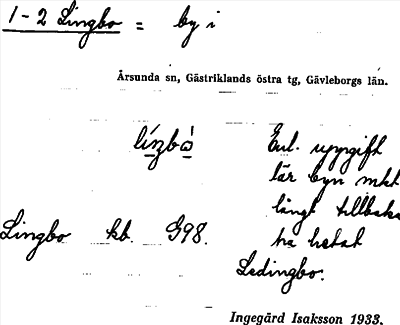 1-2 Lingbo = by i
Årsunda sn, Gästriklands östra tg, Gävleborgs län.
líŋbò
Enl. uppgift
lär byn mkt
långt tillbaka
ha hetat
Ledingbo.
Lingbo kb. G98.
Ingegärd Isaksson 1933.